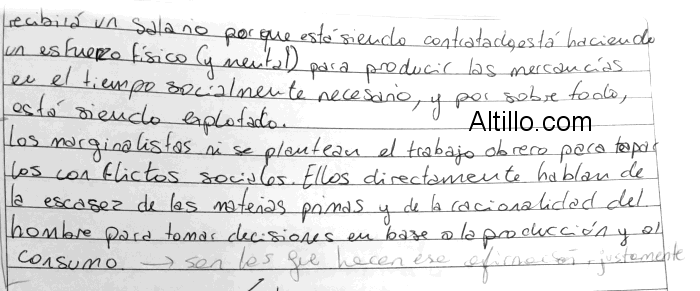 recibirá un salario porque está siendo contratado, está haciendo
un esfuerzo físico (y mental) para producir las mercancías
en el tiempo socialmente necesario, y por sobre todo,
está siendo explotado.
Altillo.com
Los marginalistas ni se plantean el trabajo obrero para tapar
los conflictos sociales. Ellos directamente hablan de
la escasez de las materias primas y de la racionalidad del
hombre para tomar decisiones en base a la producción y al
consumo. → son los que hacen esa afirmación, justamente